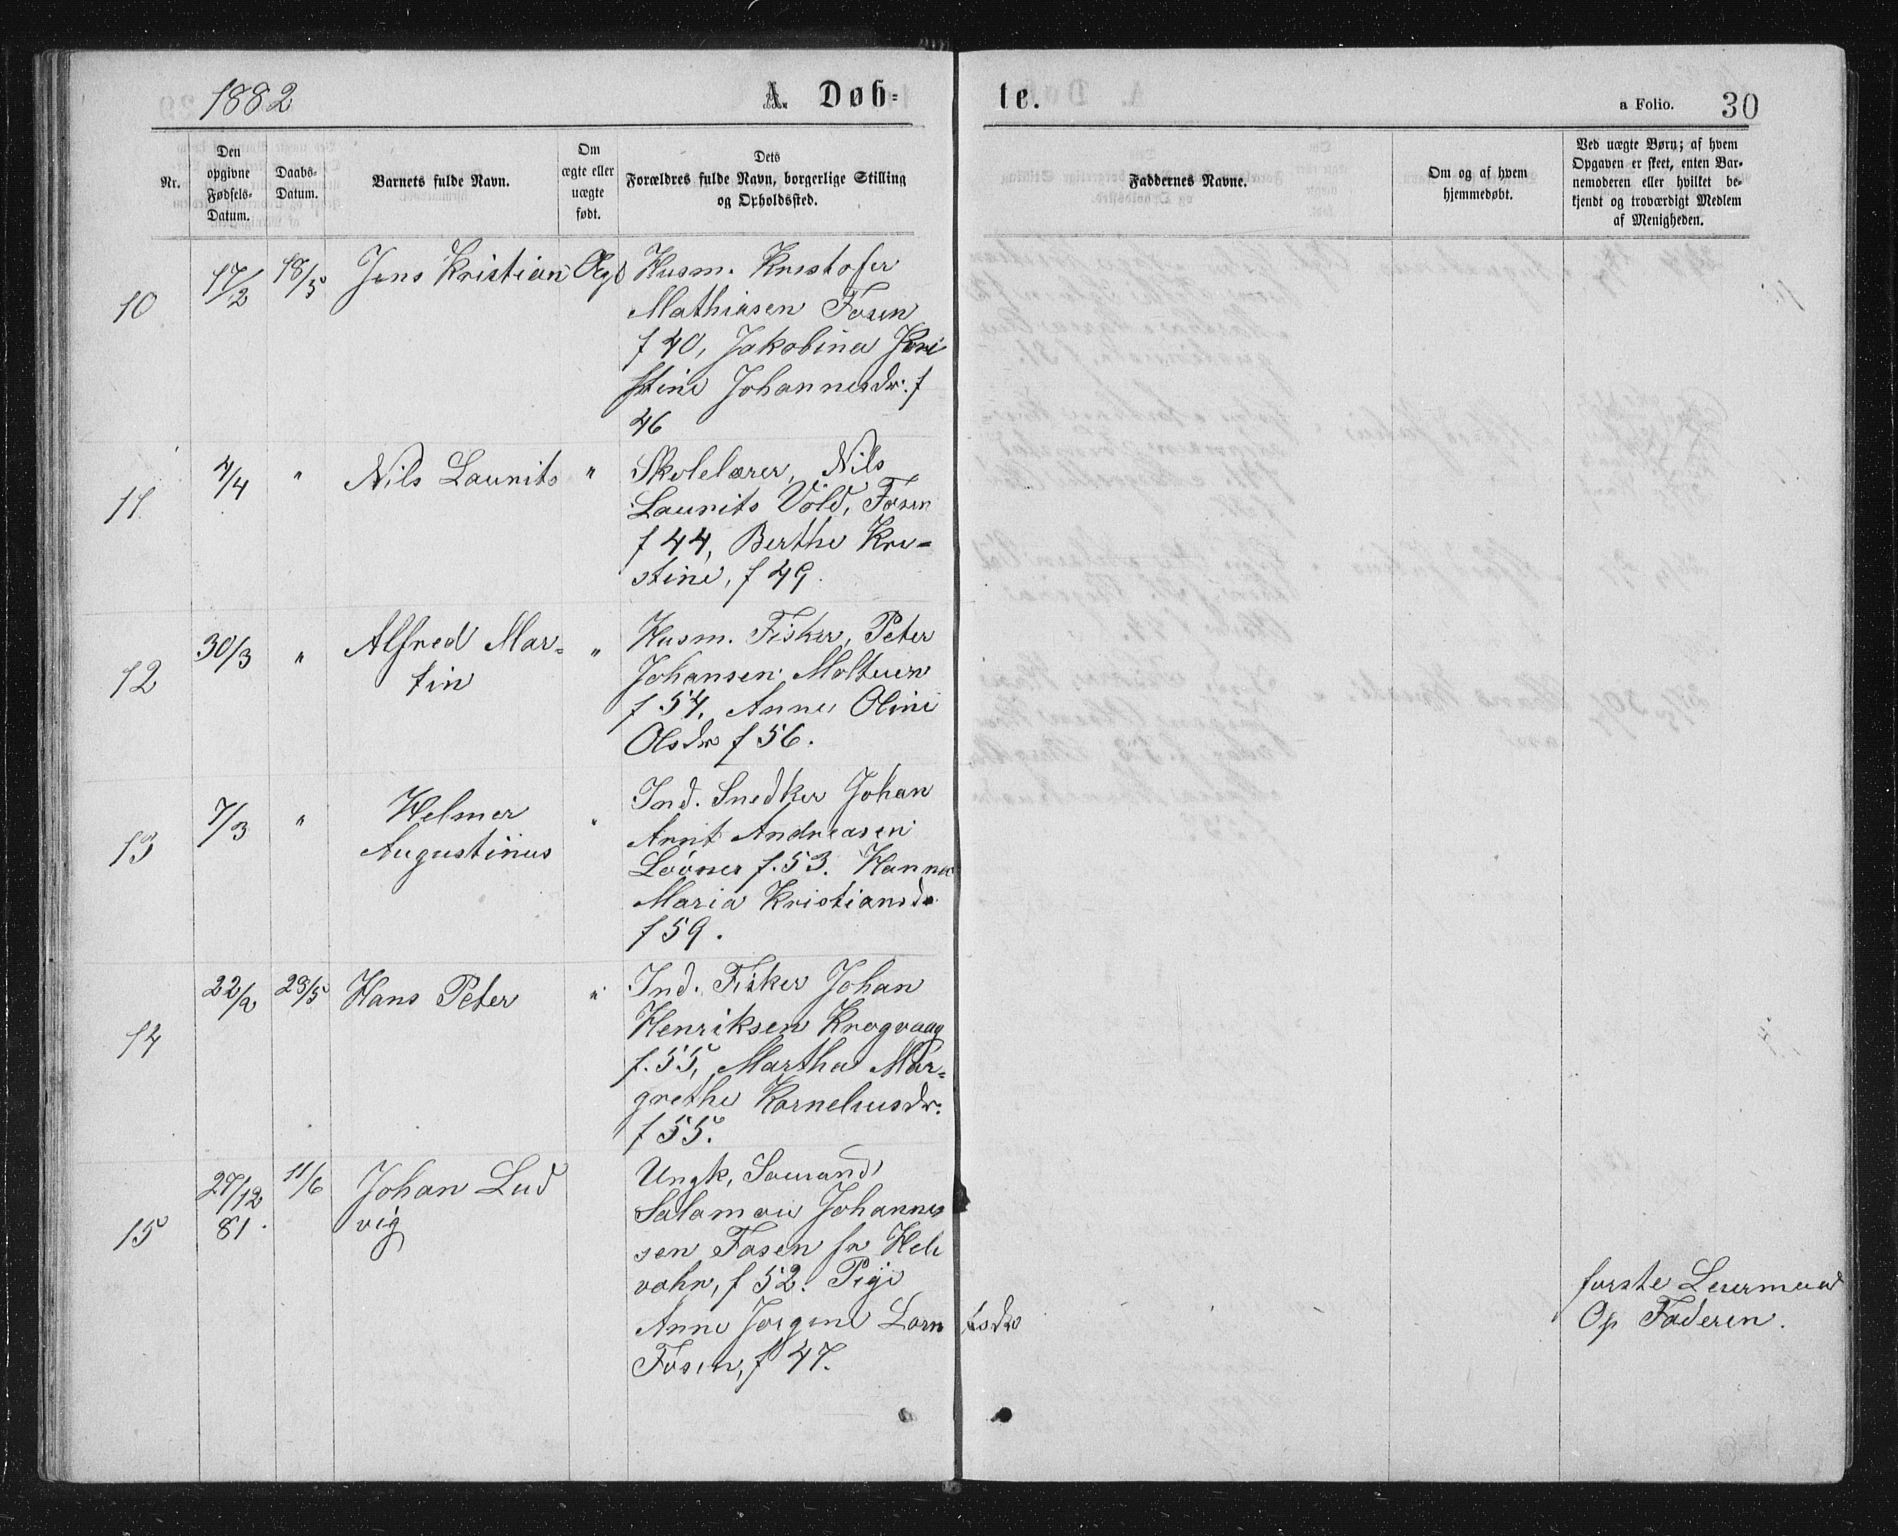 1882
A. Døb-
te.
a Folio. 30
Nr.
Den
opgivne
Fødsels-
Datum.
Daabs-
Datum.
Barnets fulde Navn.
Om
ægte eller
uægte
født.
Dets
Forældres fulde Navn, borgerlige Stilling
og Opholdssted.
Faddernes Navne.
Om og af hvem
hjemmedøbt.
Ved uægte Børn; af hvem
Opgaven er skeet, enten Bar-
nemoderen eller hvilket be-
kjendt og troværdigt Medlem
af Menigheden.
10 17/2 18/5 Jens Kristian Ægt Husm. Kristofer
Mathiasen Fosen
f 40, Jakobina Kri
stine Johannesdr. f
46
11 4/4 " Nils Laurits " Skolelærer, Nils
Laurits Vold, Fosen
f 44, Berthe Kri-
stine, f 49.
12 30/3 " Alfred Mar-
tin " Husm. Fisker, Peter
Johansen Moltuen
f 54, Anne Oline
Olsdr f 56.
13 7/3 " Helmer
Augustinus " Ind. Snedker Johan
Arnt Andreasen
Lövnes f. 53. Hanna
Maria Kristiansdr
f 59.
14 22/2 29/5 Hans Peter " Ind. Fisker Johan
Henriksen Krogvaag
f. 55, Martha Mar-
grethe Korneliusdr.
f 55.
15 27/12
81. 11/6 Johan Lud
vig Ungk,
Salamon Johannes
sen Fosen fr
f 52. Pige
Anne Jorgine Lorn tsdr
Fosen, f 47.
forste Leiermaal
Op Faderen.